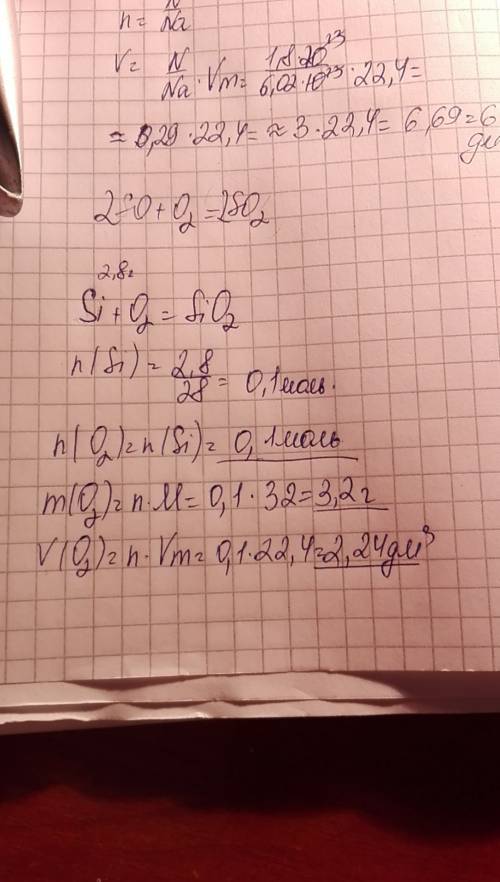 n = N/Na
V = N/Na · Vm = 1,8·20²³/6,02·10²³ · 22,4 =
≈ 0,29 · 22,4 = ≈ 3 · 22,4 = 6,69 = 6
2SO + O₂ = 2SO₂
2,8г
Si + O₂ = SiO₂
n(Si) = 2,8/28 = 0,1 моль.
n(O₂) = n(Si) = 0,1 моль
m(O₂) = n · M = 0,1 · 32 = 3,2 г
V(O₂) = n · Vm = 0,1 · 22,4 = 2,24 дм³